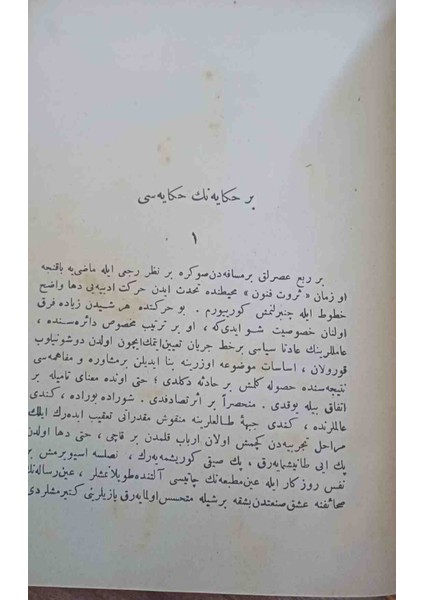 بر حكايه نك حكايه سى
١
بر ربع عصرلق بر مسافه دن صوكره بر نظر رجعى ايله ماضى يه باقنجه
او زمان « ثروت فنون » محيطنده تحدث ايدن حركت ادبيه يى دها واضح
خطوط ايله چنبرلنمش كورييورم . بو حركتده هر شيدن زياده فرق
اولنان خصوصيت شو ايدى كه ، او بر ترتيب مخصوص دائره سنده ،
عامللرينك عادتا سياسى بر خط جريان تعيين ايتمك ايچون اولدن دوشونيلوب
قورولان ، اساسات موضوعه اوزرينه بنا ايديلن بر مشاوره و مفاهمه سى
نتيجه سنده حصوله كلمش بر حادثه دكلدى ؛ حتى اونده معناى تاميله بر
اتفاق بيله يوقدى . منحصراً بر اثر تصادفدى . شوراده بوراده ، كندى
عالملرنده ، كندى جبهۀ طالعلرينه منقوش مقدراتى تعقيب ايده رك ايلك
مراحل تجربييه دن كچمش اولان ارباب قلمدن بر قاچى ، حتى دها اولدن
پك ايى طانيشمايه رق ، پك صيقى كوريشمه يه رك ، نصلسه اسيويرمش بر
نفس روزكار ايله عين مطبعه نك چاتيسى آلتنده طوپلانمشلر ، عين رساله نك
صحائفنه عشق صنعتدن بشقه بر شيله متحسس اولمايه رق يازيلرينى كتيرمشلردى